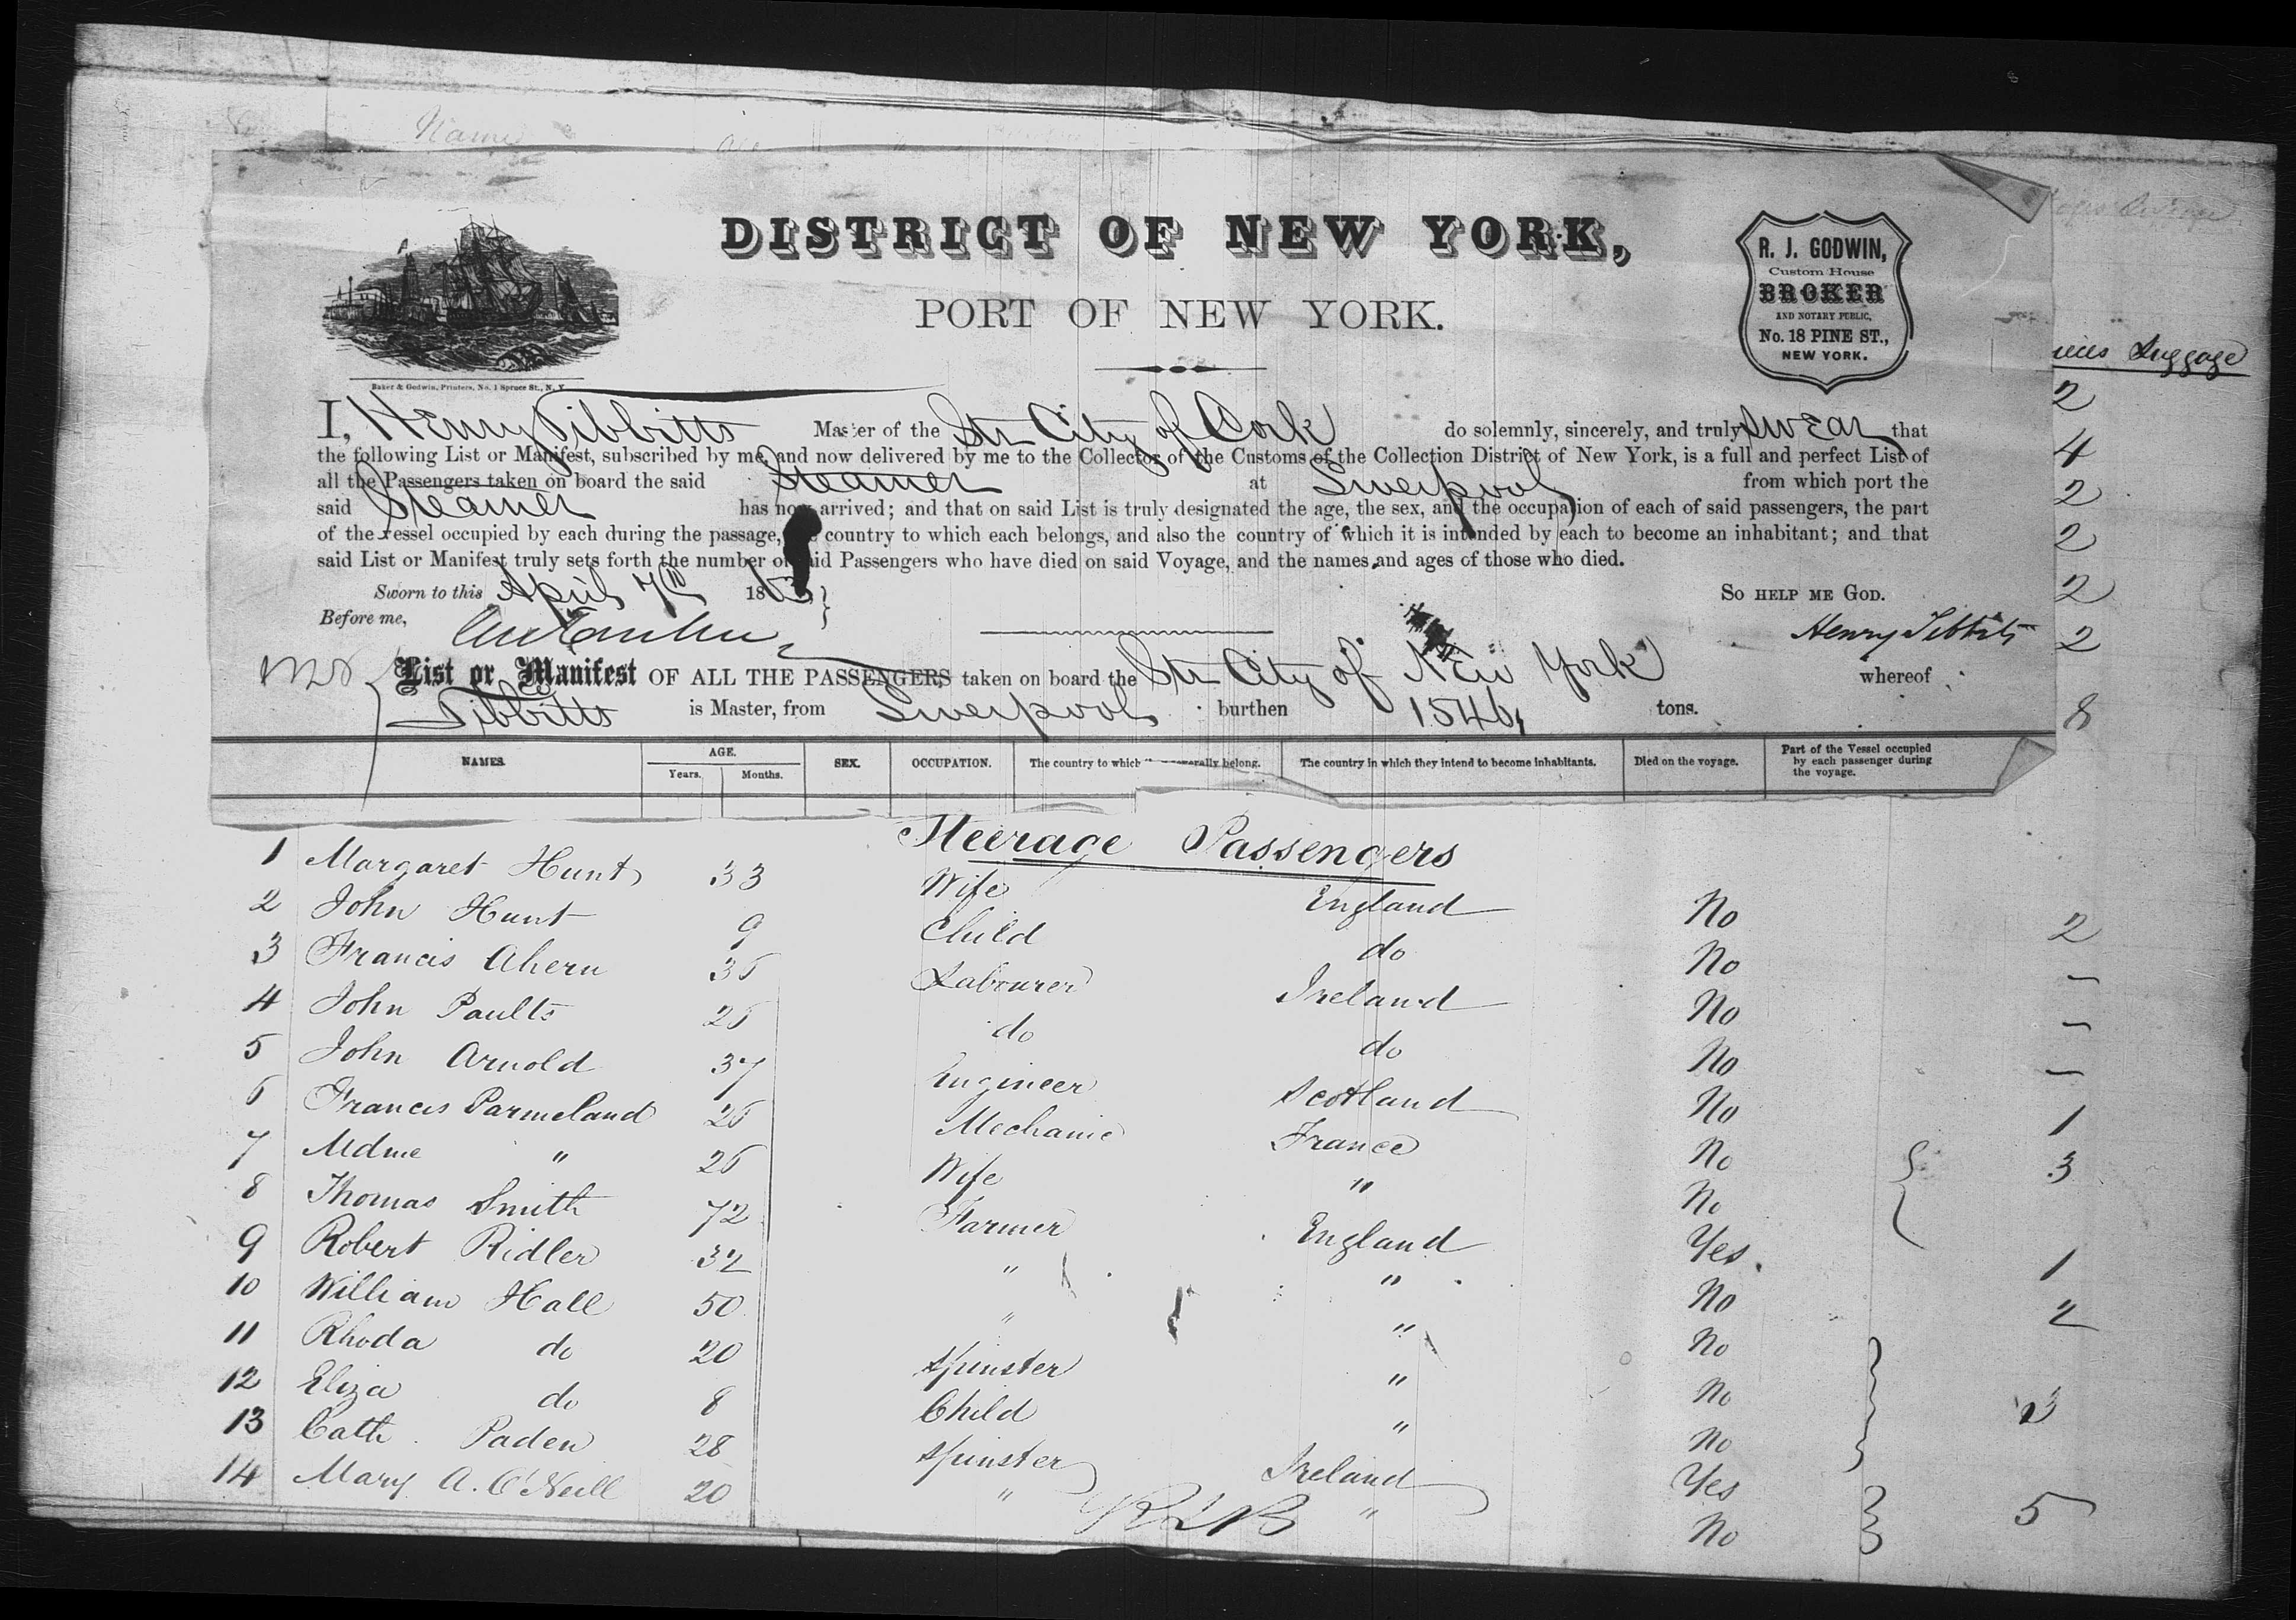 Names
DISTRICT OF NEW YORK,
PORT OF NEW YORK.
R. J. GODWIN,
Custom House
BROKER
AND NOTARY PUBLIC,
No. 18 PINE ST.,
NEW YORK.
Baker & Godwin, Printers, No. 1 Spruce St., N. Y.
Luggage
2
4
2
2
2
2
8
I, Henry Tibbitts Master of the Str City of Cork do solemnly, sincerely, and truly swear that
the following List or Manifest, subscribed by me, and now delivered by me to the Collector of the Customs of the Collection District of New York, is a full and perfect List of
all the Passengers taken on board the said Steamer at Liverpool from which port the
said Steamer has now arrived; and that on said List is truly designated the age, the sex, and the occupation of each of said passengers, the part
of the vessel occupied by each during the passage, country to which each belongs, and also the country of which it is intended by each to become an inhabitant; and that
said List or Manifest truly sets forth the number of said Passengers who have died on said Voyage, and the names and ages of those who died.
Sworn to this April 7th 1863 So HELP ME GOD.
Before me, Henry Tibbits
List or Manifest OF ALL THE PASSENGERS taken on board the Str City of New York whereof
Tibbitts is Master, from Liverpool burthen 1546 tons.
NAMES. AGE. Years. Months. SEX. OCCUPATION. The country to which generally belong. The country in which they intend to become inhabitants. Died on the voyage. Part of the Vessel occupied by each passenger during the voyage.
Steerage Passengers
1 Margaret Hunt 33 Wife England No 2
2 John Hunt 9 Child do No –
3 Francis Ahern 35 Labourer Ireland No –
4 John Paults 25 do do No –
5 John Arnold 37 Engineer Scotland No 1
6 Francis Parmeland 25 Mechanic France No 3
7 Mdme " 25 Wife " No
8 Thomas Smith 72 Farmer England Yes. 1
9 Robert Ridler 32 " " No 2
10 William Hall 50 " " No
11 Rhoda do 20 Spinster " No 3
12 Eliza do 8 Child " No
13 Cath. Paden 28 Spinster Ireland Yes 5
14 Mary A. O'Neill 20 " " No